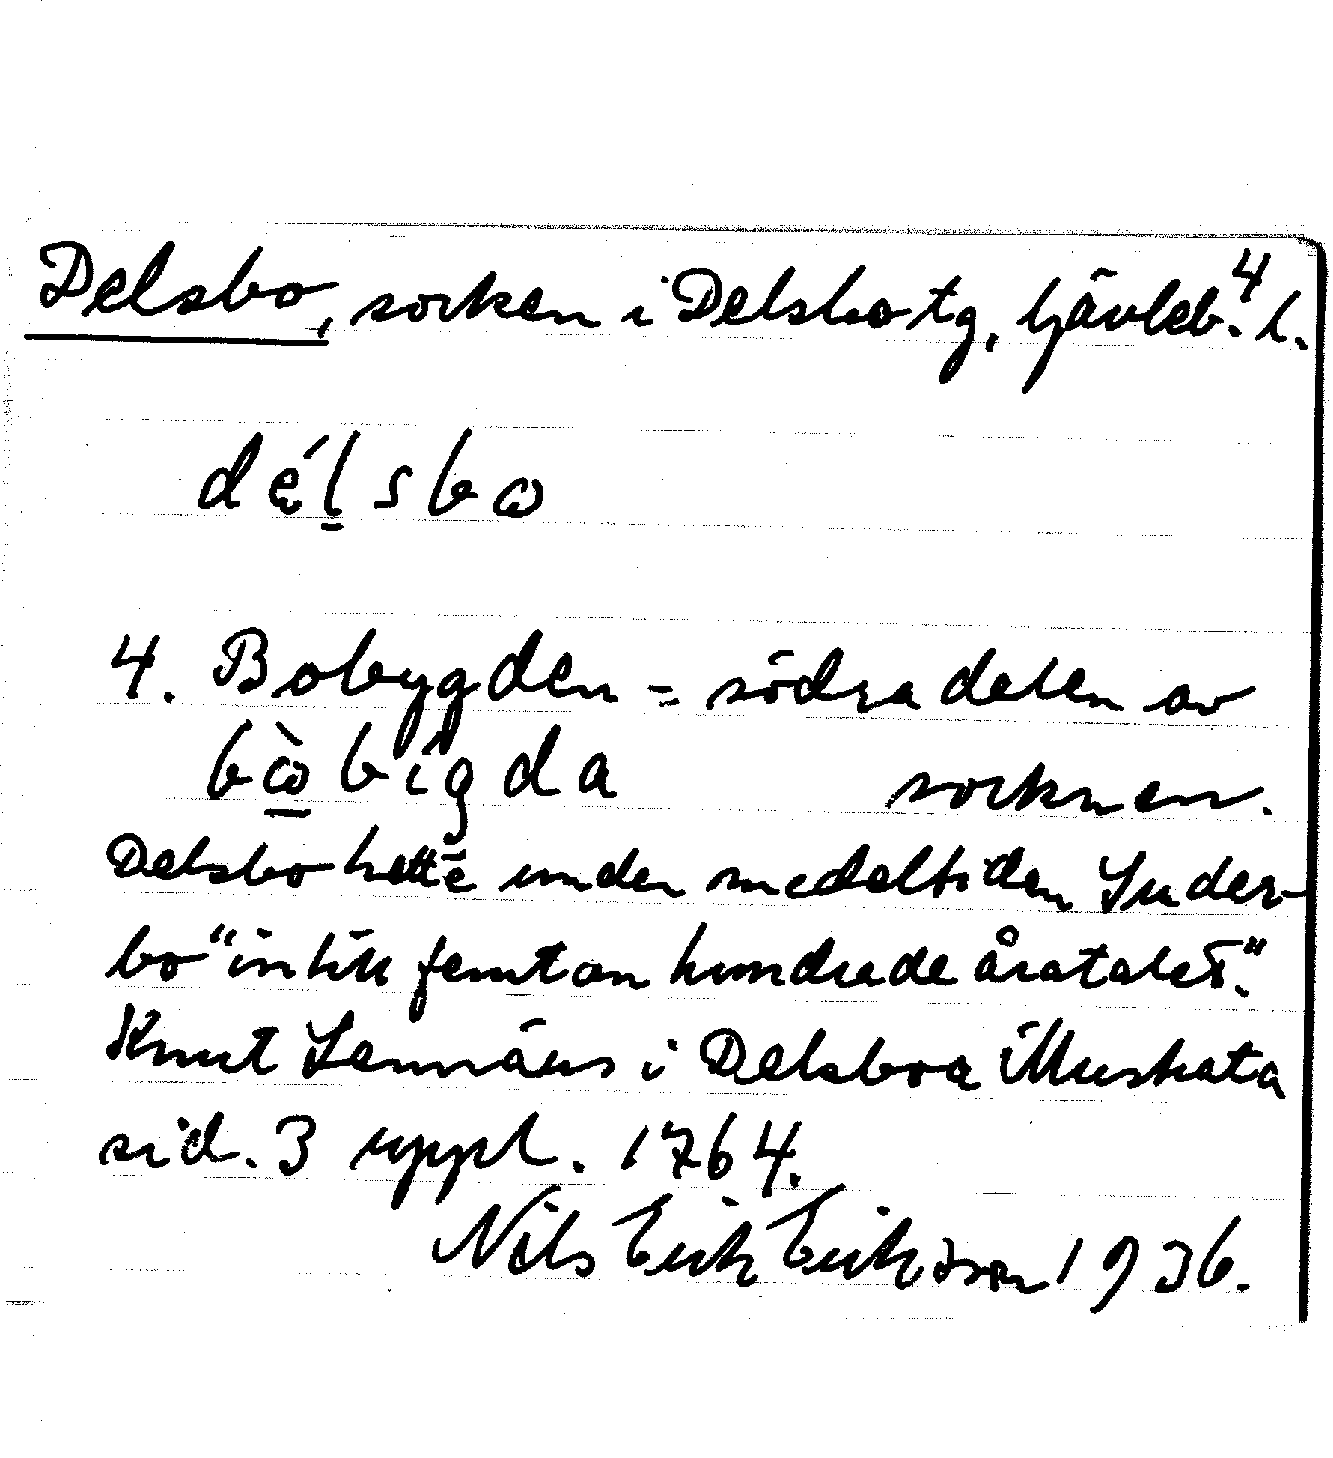 Delsbo, socken i Delsbo tg, Gävleb. l. 4
délsbω
4. Bobygden = södra delen av
bὼbígda socknen.
Delsbo hette under medeltiden Suder-
bo "in till femton hundrade åratalet".
Knut Lennæus i Delsboa illustrata
sid. 3 uppl. 1764.
Nils Erik Eriksson 1936.